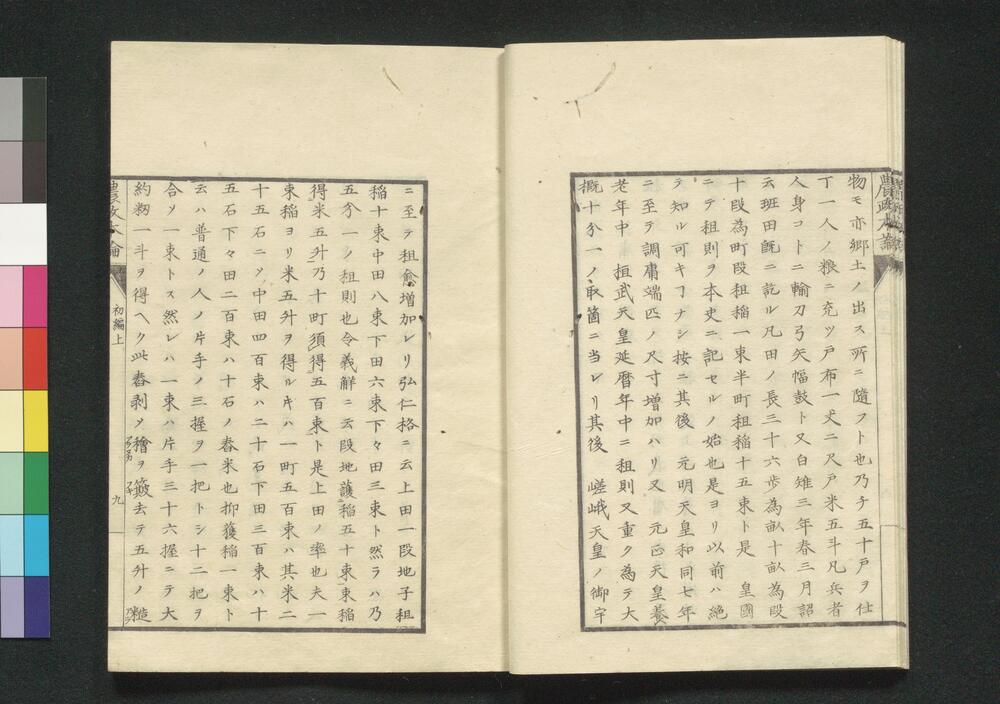 物モ亦郷土ノ出ス所ニ隨フト也乃チ五十戸ヲ仕
丁一人ノ粮ニ充ツ戸布一丈二尺戸米五斗凡兵者
人身コトニ輸刀弓矢幡鼓ト又白雉三年春三月詔
云班田旣ニ訖ル凡田ノ長三十六歩為畝十畝為段
十段為町段租稲一束半町租稲十五束ト是 皇國
ニテ租則ヲ本史ニ記セルノ始也是ヨリ以前ハ絶
テ知ル可キヿナシ按ニ其後 元明天皇和同七年
ニ至テ調庸端匹ノ尺寸増加ハリ又 元正天皇養
老年中 桓武天皇延暦年中ニ租則又重ク為テ大
概十分一ノ取箇ニ当レリ其後 嵯峨天皇ノ御宇
ニ至テ租愈増加レリ弘仁格ニ云上田一段地子租
稲十束中田八束下田六束下々田三束ト然ラハ乃
五分一ノ租則也令義解ニ云段地獲稲五十束束稲
得米五升乃十町須得五百束ト是上田ノ率也夫一
束稲ヨリ米五升ヲ得ルキハ一町五百束ハ其米二
十五石ニツ中田四百束ハ二十石下田三百束ハ十
五石下々田二百束ハ十石ノ舂米也抑獲稲一束ト
云ハ普通ノ人ノ片手ノ三握ヲ一把トシ十二把ヲ
合ソ一束トス然レハ一束ハ片手三十六握ニテ大
約籾一斗ヲ得ヘク此舂剥メ穭ヲ簸去テ五升ノ糙
農政本論
初編上
九